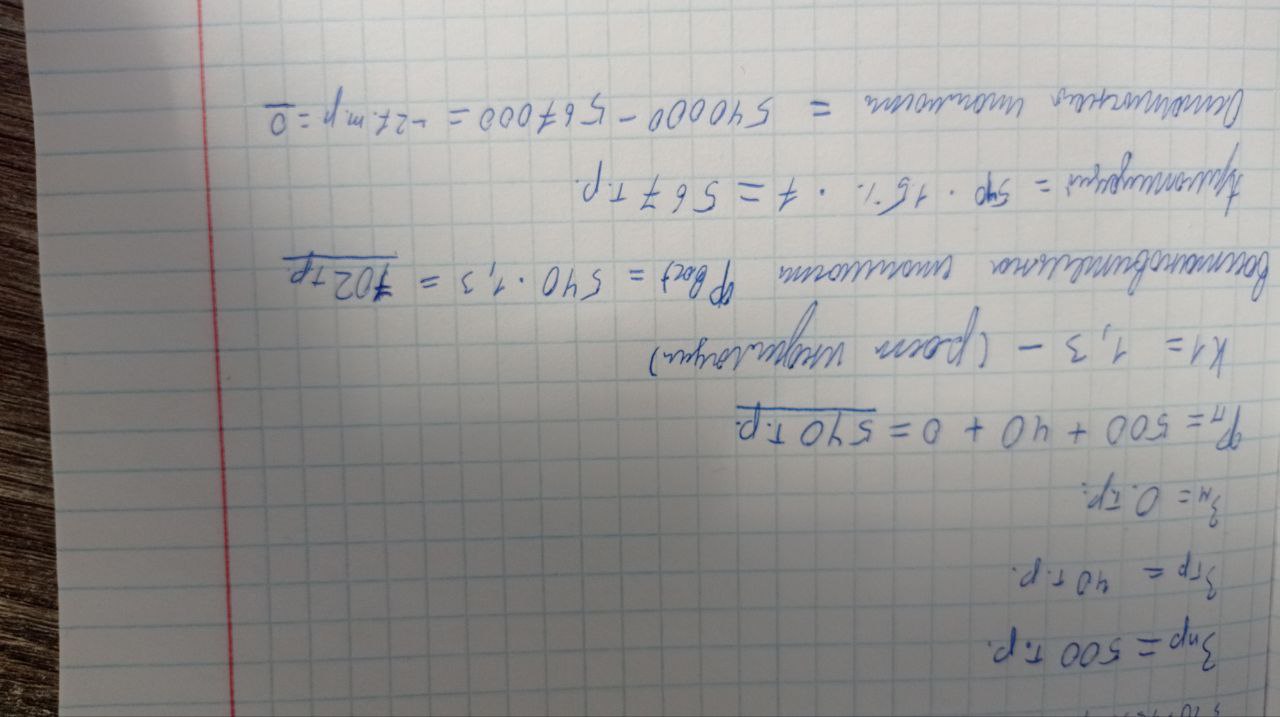 Зпр = 500 т.р.
Згр = 40 т.р.
Зм = 0.т.р.
Фп = 500 + 40 + 0 = 540 т.р.
К1 = 1,3 - (рост инфляции)
Востановительна стоимость Фвост = 540 · 1,3 = 702 т.р.
Армотизация = 540 · 15% · 7 = 567 т.р.
Остаточная стоимость = 540000 - 567000 = -27.т.р = 0